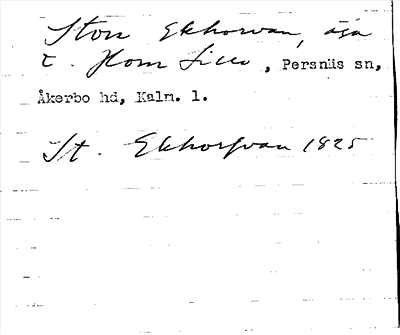 Stora Ekhorvan, äga
t. Horn Lilla, Persnäs sn,
Åkerbo hd, Kalm. l.
St. Ekhorfvan 1825